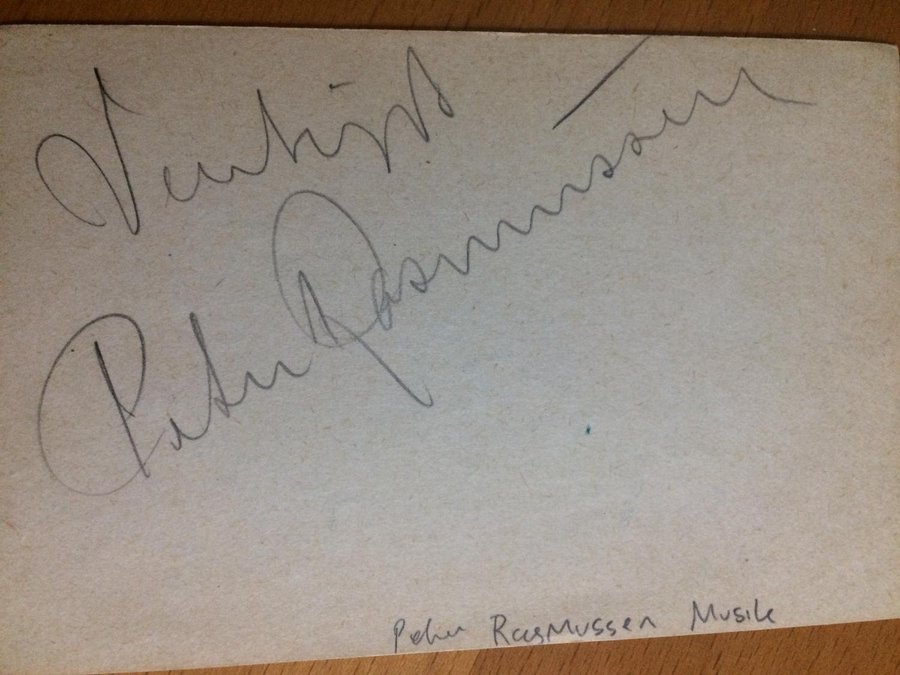 Venligst
Peter Rasmussen
Peter Rasmussen Musik